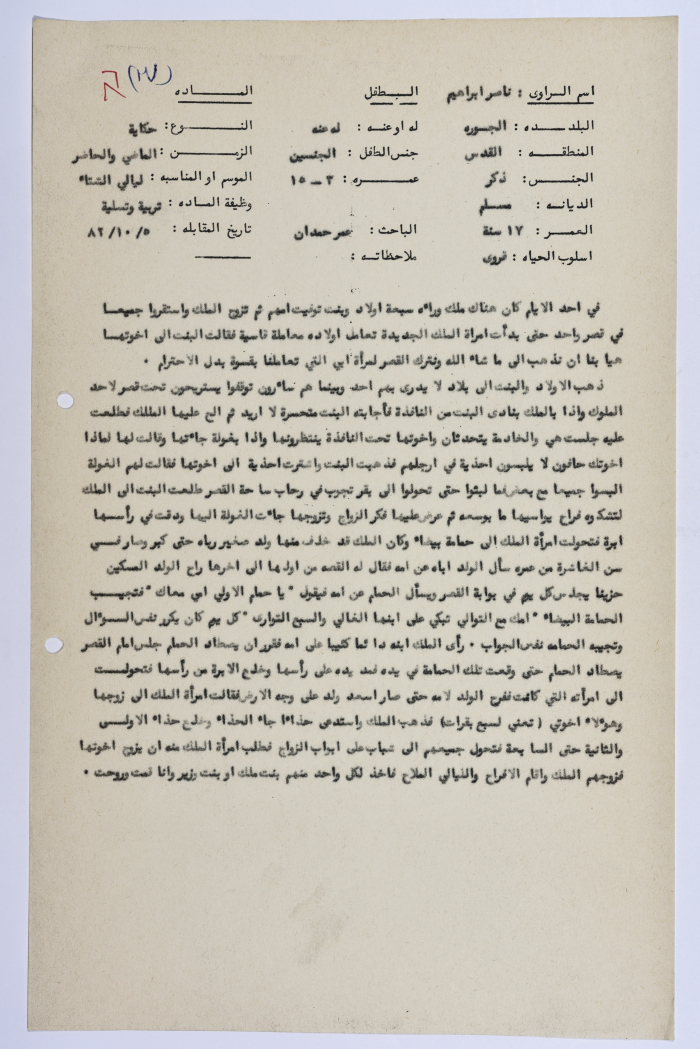 (٢٧)
اسم الراوي : ناصر ابراهيم    البطفل    المــاده
البلــده : الجوره    له او عنه : له عنه    النــوع : حكاية
المنطقه : القدس    جنس الطفل : الجنسين    الزمــن : الماضي والحاضر
الجنس : ذكر    عمــره : ٣ – ١٥    الموسم او المناسبه : ليالي الشتاء
الديانه : مسلم    وظيفة الماده : تربية وتسلية
العمــر : ١٧ سنة    الباحث : عمر حمدان    تاريخ المقابله : ٥/ ١٠/ ٨٢
اسلوب الحياه : قروى    ملاحظاته :
في احد الايام كان هناك ملك وراءه سبعة اولاد وبنت توفيت امهم ثم تزوج الملك واستقروا جميعــا
في قصر واحد حتى بدأت امرأة الملك الجديدة تعامل اولاده معاملة قاسية فقالت البنت الى اخوتهــا
هيا بنا ان نذهب الى ما شاء الله ونترك القصر لمرأة ابي التي تعاملنا بقسوة بدل الاحترام .
ذهب الاولاد والبنت الى بلاد لا يدرى بهم احد وبينما هم ساءرون توقفوا يستريحون تحت قصر لاحد
الملوك واذا بالملك ينادى البنت من النافذة فأجابته البنت متحسرة لا اريد ثم الح عليها الملك فطلعت
عليه جلست هي والخادمة يتحدثان واخوتها تحت النافذة ينتظرونها واذا بغولة جاءتها وقالت لها لماذا
اخوتك حافون لا يلبسون احذية في ارجلهم فذهبت البنت واشترت احذية الى اخوتها فقالت لهم الغولة
البسوا جميعا مع بعض فما لبثوا حتى تحولوا الى بقر تجوب في رحاب ساحة القصر طلعت البنت الى الملك
لتشكوه فراح يواسيها ما بوسعه ثم عرض عليها فكر الزواج وتزوجها جاءت الغولة اليها ودقت في رأسها
ابرة فتحولت امرأة الملك الى حمامة بيضاء وكان الملك قد خلف منها ولد صغير رباه حتى كبر وصار فــي
سن العاشرة من عمره سأل الولد اباه عن امه فقال له القصه من اولها الى اخرها راح الولد المسكين
حزينا يجلس كل يوم في بوابة القصر ويسأل الحمام عن امه فيقول " يا حمام الاولي امي معاك " فتجيــب
الحمامة البيضاء " امك مع التوالي تبكي على ابنها الغالي والسبع التوارى " كل يوم كان يكرر نفس الســؤال
وتجيبه الحمامه نفس الجواب . رأى الملك ابنه دائما كئيبا على امه فقرر ان يصطاد الحمام جلس امام القصر
يصطاد الحمام حتى وقعت تلك الحمامة في يده فمد يده على رأسها وخلع الابرة من رأسها فتحولــت
الى امرأته التي كانت ففرح الولد لامه حتى صار اسعد ولد على وجه الارض فقالت امرأة الملك الى زوجها
وهوءلاء اخوتي ( تعني لسبع بقرات) فذهب الملك واستدعى حذاءا جاء الحذاء وخلع حذاء الاولــى
والثانية حتى السابعة فتحول جميعهم الى شباب على ابواب الزواج فطلب امرأة الملك منه ان يزوج اخوتها
فزوجهم الملك واقام الافراح والليالي الملاح فاخذ لكل واحد منهم بنت ملك او بنت وزير وانا قمت وروحت .